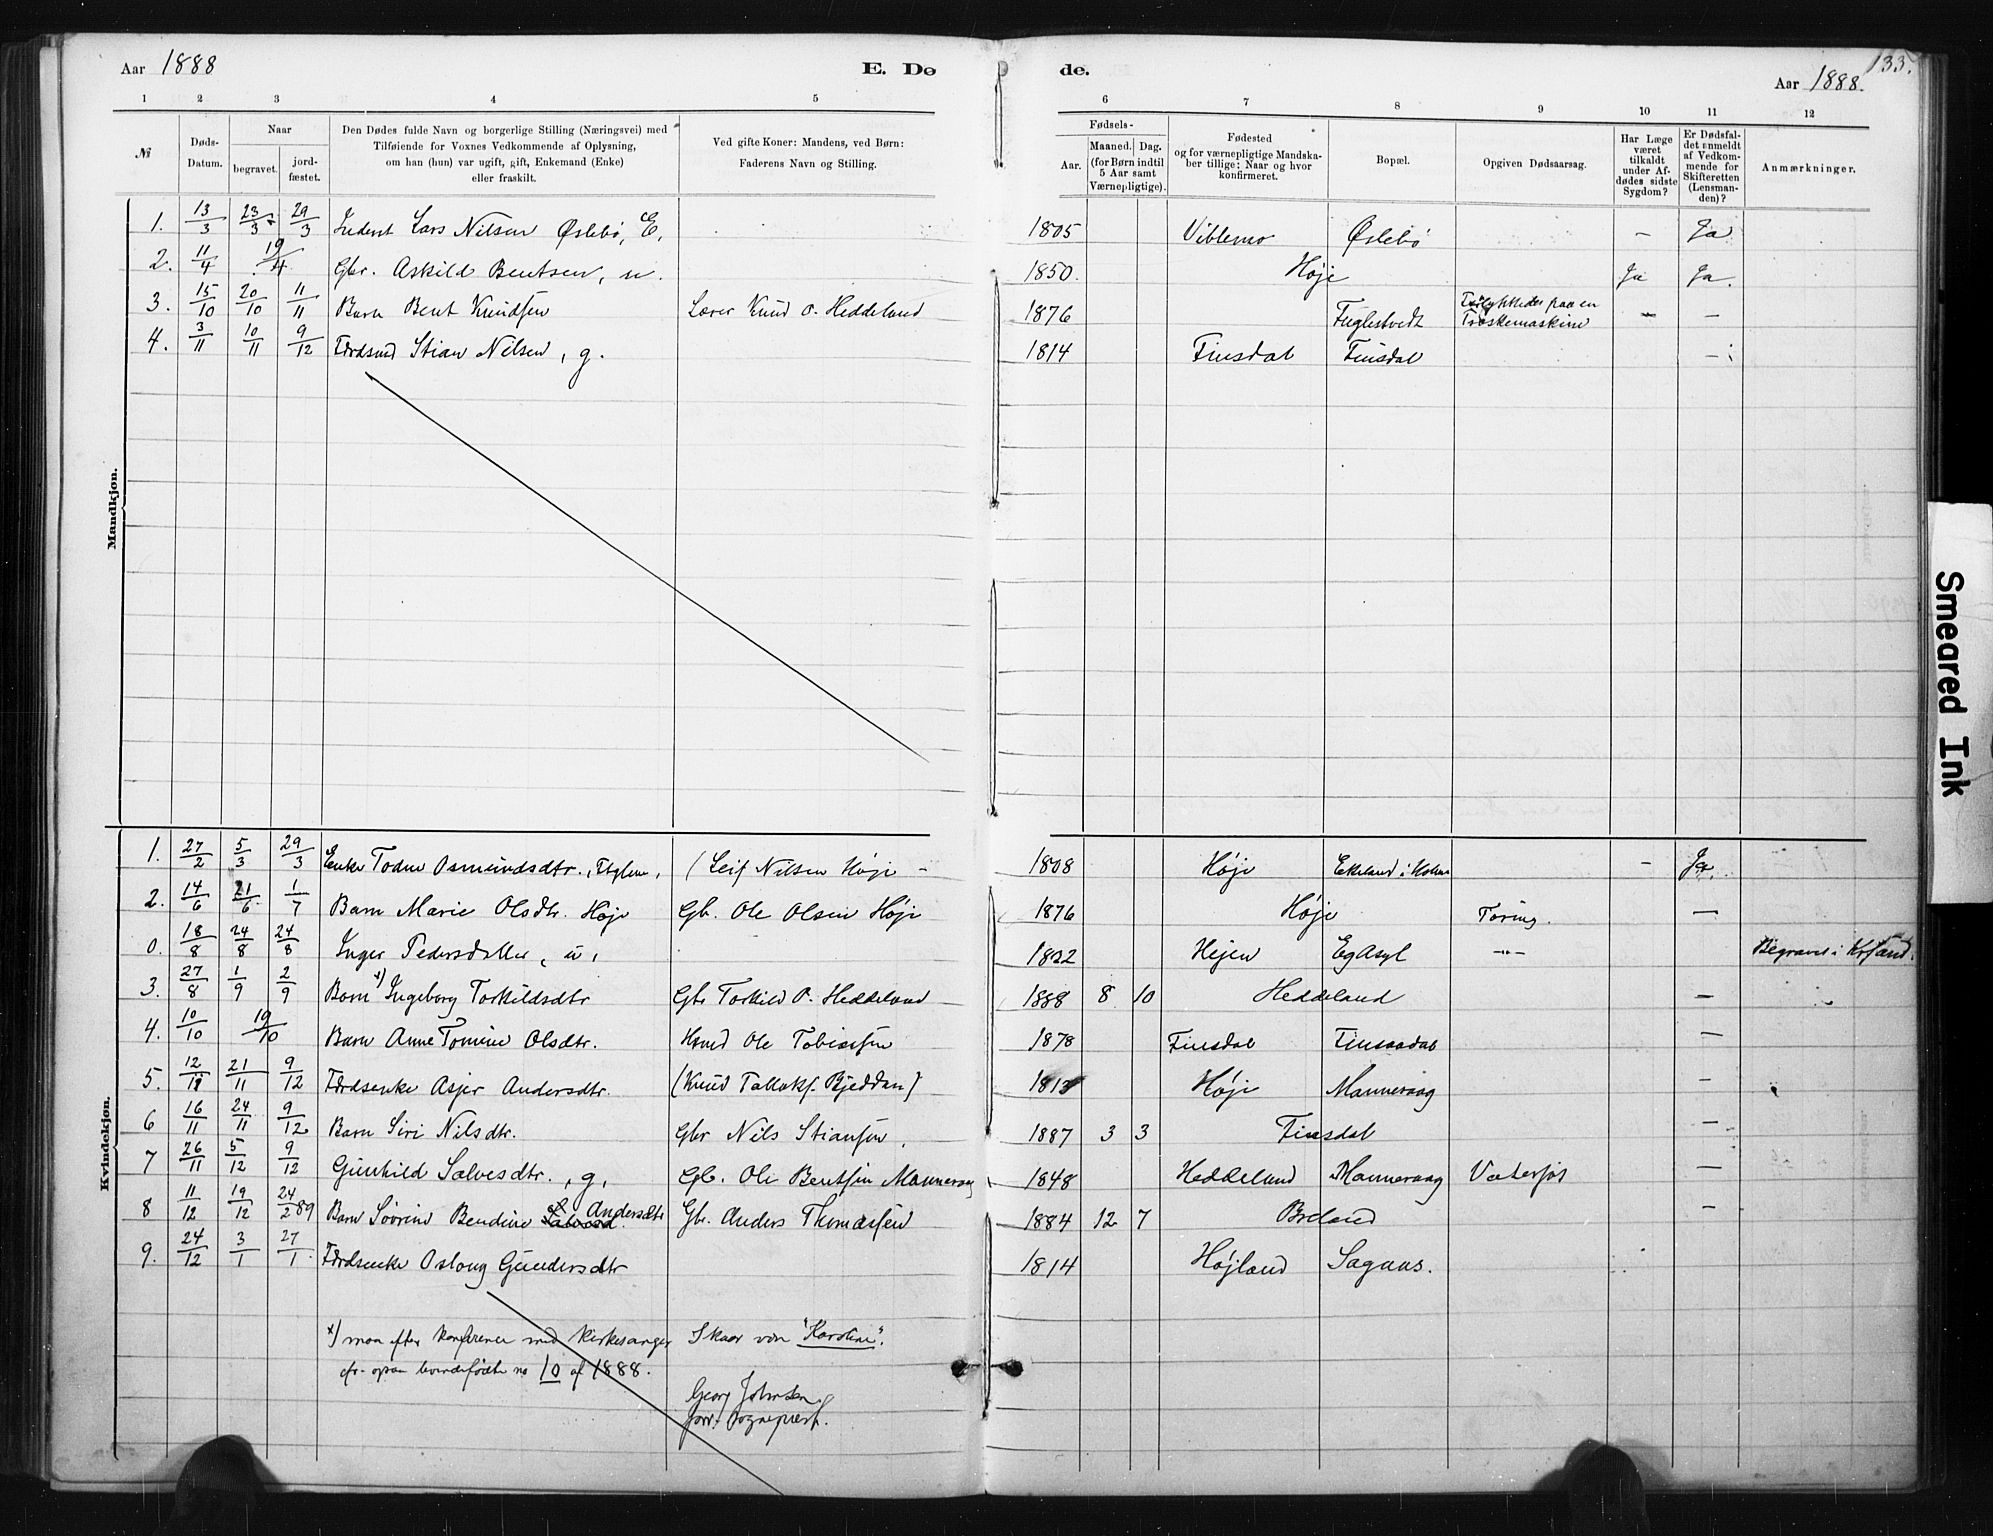 Aar 1888 E. Dø de. Aar 1888. 133.
1 2 3 4 5 6 7 8 9 10 11 12
№ Døds-Datum. Naar begravet. jord-fæstet. Den Dødes fulde Navn og borgerlige Stilling (Næringsvei) med Tilføiende for Voxnes Vedkommende af Oplysning, om han (hun) var ugift, gift, Enkemand (Enke) eller fraskilt. Ved gifte Koner: Mandens, ved Børn: Faderens Navn og Stilling. Fødsels- Aar. Maaned. Dag. (for Børn indtil 5 Aar samt Værnepligtige). Fødested og for værnepligtige Mandska-ber tillige: Naar og hvor konfirmeret. Bopæl. Opgiven Dødsaarsag. Har Læge været tilkaldt under Af-dødes sidste Sygdom? Er Dødsfal-det anmeldt af Vedkom-mende for Skifteretten (Lensman-den)? Anmærkninger.
Mandkjøn.
1. 13/3 23/3 29/3 Inderst Lars Nilsen Øslebø, E. 1805 Viblemo Øslebø – Ja
2. 11/4 19/4 Gbr. Askild Bentsen, u. 1850. Høje Ja Ja.
3. 15/10 20/10 11/11 Barn Bent Knudsen Lærer Knud O. Heddeland 1876 Fuglestvedt Forulykkedes paa en Træskemaskine – –
4. 3/11 10/11 9/12 Førdsmd Stian Nilsen, g. 1814 Finsdal Finsdal –
Kvindekjøn.
1. 27/2 5/3 29/3 Enke Todne Osmundsdtr., (Leif Nilsen Høje – 1808 Høje Ekeland i Holme – Ja.
2. 14/6 21/6 1/7 Barn Marie Olsdtr. Høje Gb. Ole Olsen Høje 1876 Høje Tæring. –
0. 18/8 24/8 24/8 Inger Pedersdatter, u. 1822 Hejen Eg Asyl –"– Begravet i Krsand.
3. 27/8 1/9 2/9 Barn x) Ingeborg Torkildsdtr Gbr Torkild O. Heddeland 1888 8 10 Heddeland –
4. 10/10 19/10 Barn Anne Tomine Olsdtr. Hsmd Ole Tobiassen 1878 Finsdal Finsdal –
5. 12/11 21/11 9/12 Førdsenke Asjer Andersdtr. (Knud Tallaksf. Bjeddan) 1813 Høje Manneraag –
6 16/11 24/11 9/12 Barn Siri Nilsdtr. Gbr Nils Stiansen. 1887 3 3 Finsdal –
7 26/11 5/12 9/12 Gunhild Salvesdtr., g, Gb. Ole Bentsen Manneraag 1848 Heddeland Manneraag Vatersot –
8 11/12 19/12 24/2 89 Barn Sovrine Bendine Andersdtr Gbr. Anders Thomassen 1884 12 7 Breland –
9. 24/12 3/1 27/1 Førdsenke Oslaug Gundersdtr 1814 Højland Sagaas.
x) maa efter konference med kirkesanger Skaar være "Karoline".
cfr. ogsaa kvindefødte no 10 af 1888.
Georg Johnsen
forr. Sogneprest.
Smeared Ink